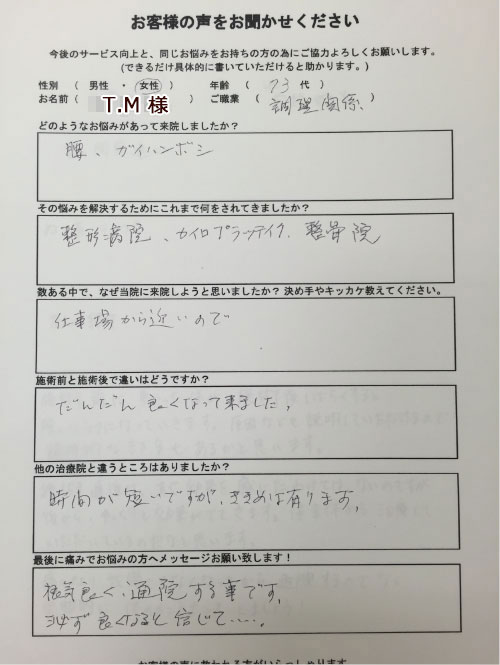 お客様の声をお聞かせください
今後のサービス向上と、同じお悩みをお持ちの方の為にご協力よろしくお願いします。
(できるだけ具体的に書いていただけると助かります。)
性別 ( 男性 ・ 女性 ) 年齢 ( 73 代 )
お名前 ( T.M 様 ) ご職業 ( 調理関係 )
どのようなお悩みがあって来院しましたか？
腰、ガイハンボシ
その悩みを解決するためにこれまで何をされてきましたか？
整形病院、カイロプラッティク、整骨院
数ある中で、なぜ当院に来院しようと思いましたか？ 決め手やキッカケ教えてください。
仕事場から近いので
施術前と施術後で違いはどうですか？
だんだん良くなって来ました。
他の治療院と違うところはありましたか？
時間が短いですが、ききめは有ります。
最後に痛みでお悩みの方へメッセージお願い致します！
根気良く、通院する事です。
必ず良くなると信じて……。
お客様の声に救われる方がいらっしゃります